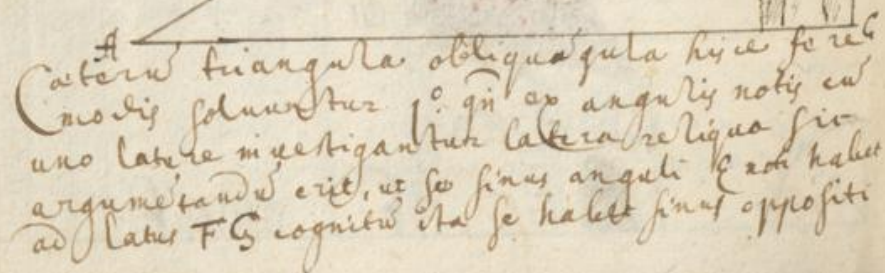 A
Cæterū triangula obliquāgula hisce fere
modis soluuntur 1º qn̄ ex angulis notis cū
uno latere inuestigantur latera reliqua sic
argumētandū erit, ut se sinus anguli E noti habet
ad latus FG cognitū ita se habet sinus oppositi